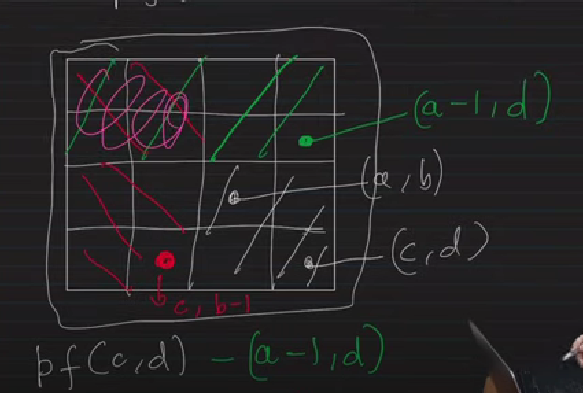 (a-1,d)
(a,b)
(c,d)
c, b-1
pf(c,d) - (a-1,d)